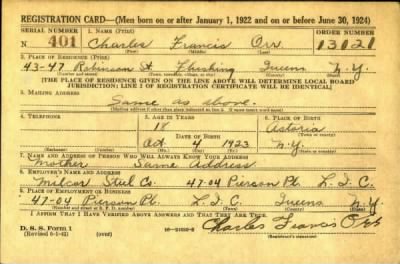 REGISTRATION CARD—(Men born on or after January 1, 1922 and on or before June 30, 1924)
SERIAL NUMBER 1. NAME (Print) ORDER NUMBER
N 401 Charles Francis Orr 13021
(First) (Middle) (Last)
2. PLACE OF RESIDENCE (Print)
43-47 Robinson St. Flushing Queens N.Y.
(Number and street) (Town, township, village, or city) (County) (State)
[THE PLACE OF RESIDENCE GIVEN ON THE LINE ABOVE WILL DETERMINE LOCAL BOARD
JURISDICTION; LINE 2 OF REGISTRATION CERTIFICATE WILL BE IDENTICAL]
3. MAILING ADDRESS
Same as above.
(Mailing address if other than place indicated on line 2. If same insert word same)
4. TELEPHONE 5. AGE IN YEARS 6. PLACE OF BIRTH
18 Astoria
DATE OF BIRTH (Town or county)
Oct. 4 1923 N.Y.
(Exchange) (Number) (Mo.) (Day) (Yr.) (State or country)
7. NAME AND ADDRESS OF PERSON WHO WILL ALWAYS KNOW YOUR ADDRESS
Mother Same Address
8. EMPLOYER'S NAME AND ADDRESS
Steel Co. 47-04 Pierson Pl. L.I.C.
9. PLACE OF EMPLOYMENT OR BUSINESS
47-04 Pierson Pl. L.I.C. Queens N.Y.
(Number and street or R. F. D. number) (Town) (County) (State)
I AFFIRM THAT I HAVE VERIFIED ABOVE ANSWERS AND THAT THEY ARE TRUE.
D. S. S. Form 1 (over) Charles Francis Orr